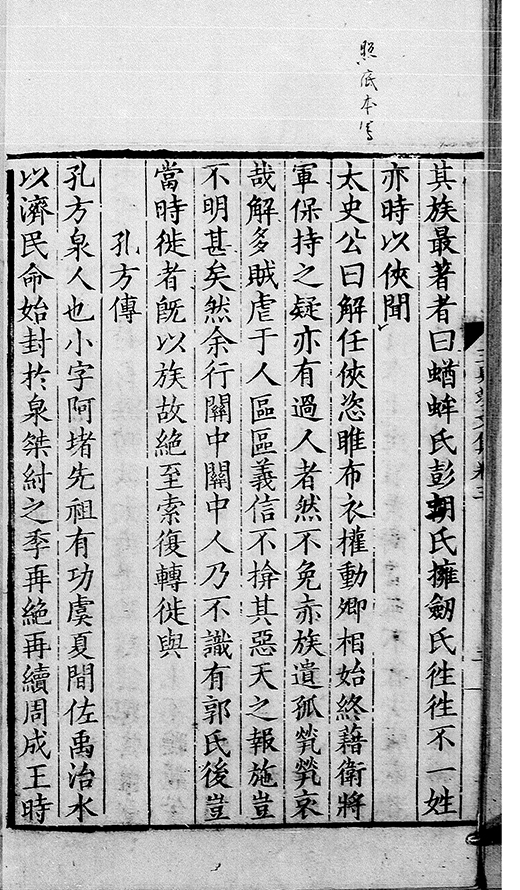 照底本寫
其族最著者曰蝤蛑氏彭蜞氏擁劒氏徃徃不一姓
亦時以俠聞
太史公曰解任俠恣睢布衣權動卿相始終藉衛將
軍保持之疑亦有過人者然不免赤族遺孤煢煢哀
哉解多賊虐于人區區義信不揜其惡天之報施豈
不明甚矣然余行關中關中人乃不識有郭氏後豈
當時徙者旣以族故絕至索復轉徙與
孔方傳
孔方泉人也小字阿堵先祖有功虞夏間佐禹治水
以濟民命始封於泉桀紂之季再絕再續周成王時